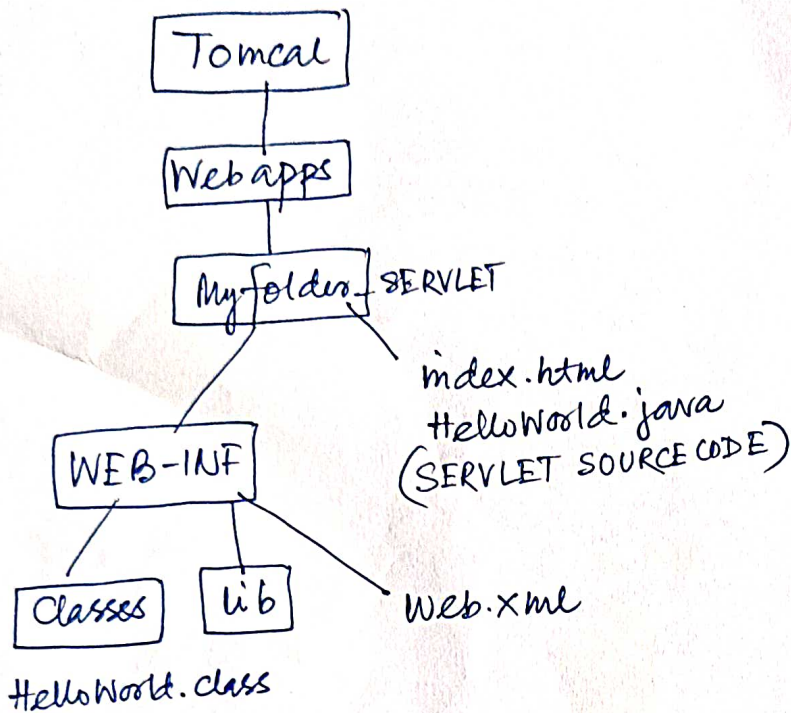 Tomcat
Webapps
Myfolder - SERVLET
index.html
HelloWorld.java
(SERVLET SOURCE CODE)
WEB-INF
Classes
lib
Web.xml
HelloWorld.class